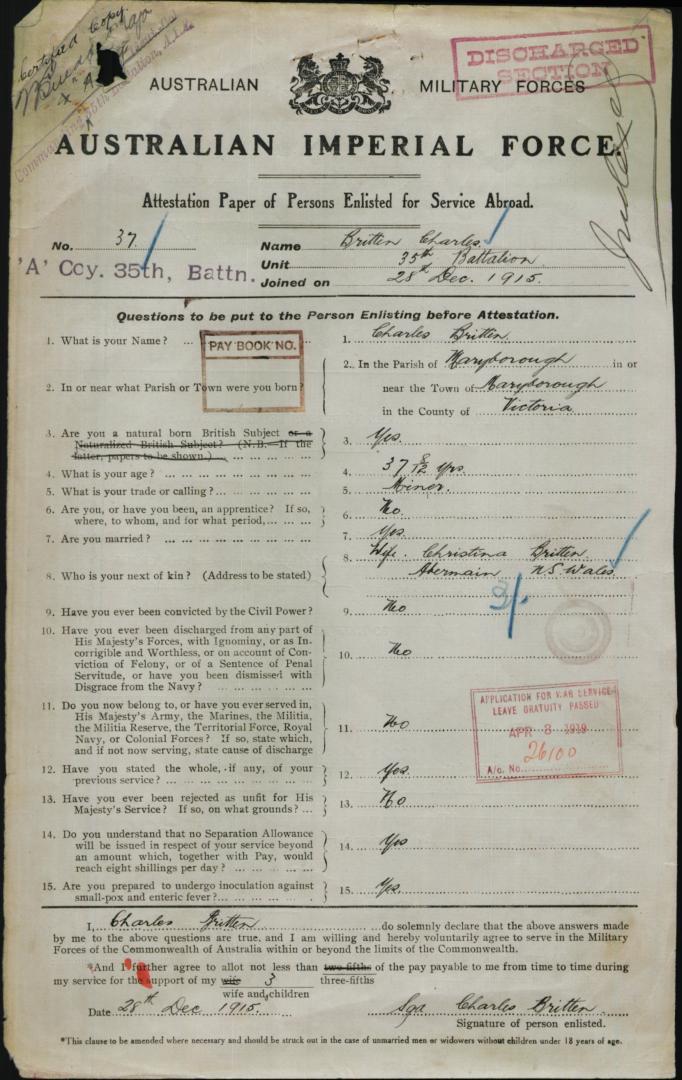 Certified Copy.
DISCHARGED
SECTION
AUSTRALIAN MILITARY FORCES
Indexed
AUSTRALIAN IMPERIAL FORCE.
Attestation Paper of Persons Enlisted for Service Abroad.
No. 37
'A' Coy. 35th, Battn.
Name Britten Charles.
Unit 35th Battalion
Joined on 28th Dec. 1915.
Questions to be put to the Person Enlisting before Attestation.
1. What is your Name? ... 1. Charles Britten.
PAY BOOK NO.
2. In or near what Parish or Town were you born?
2. In the Parish of Maryborough in or
near the Town of Maryborough
in the County of Victoria
3. Are you a natural born British Subject or a
Naturalized British Subject? (N.B.—If the
latter, papers to be shown.)
3. Yes.
4. What is your age? 4. 37 8/12 yrs.
5. What is your trade or calling? 5. Miner.
6. Are you, or have you been, an apprentice? If so,
where, to whom, and for what period,
6. No.
7. Are you married? 7. Yes
8. Who is your next of kin? (Address to be stated)
8. Wife. Christina Britten
Abermain N.S. Wales
3/.
9. Have you ever been convicted by the Civil Power? 9. No
10. Have you ever been discharged from any part of
His Majesty's Forces, with Ignominy, or as In-
corrigible and Worthless, or on account of Con-
viction of Felony, or of a Sentence of Penal
Servitude, or have you been dismissed with
Disgrace from the Navy?
10. No
11. Do you now belong to, or have you ever served in,
His Majesty's Army, the Marines, the Militia,
the Militia Reserve, the Territorial Force, Royal
Navy, or Colonial Forces? If so, state which,
and if not now serving, state cause of discharge
11. No
APPLICATION FOR WAR SERVICE
LEAVE GRATUITY PASSED
APR 8 1919
A/c. No. 26100
12. Have you stated the whole, if any, of your
previous service?
12. Yes.
13. Have you ever been rejected as unfit for His
Majesty's Service? If so, on what grounds?
13. No
14. Do you understand that no Separation Allowance
will be issued in respect of your service beyond
an amount which, together with Pay, would
reach eight shillings per day?
14. Yes
15. Are you prepared to undergo inoculation against
small-pox and enteric fever?
15. Yes.
I, Charles Britten do solemnly declare that the above answers made
by me to the above questions are true, and I am willing and hereby voluntarily agree to serve in the Military
Forces of the Commonwealth of Australia within or beyond the limits of the Commonwealth.
*And I further agree to allot not less than two-fifths of the pay payable to me from time to time during
my service for the support of my wife 3 three-fifths
wife and children
Date 28th Dec 1915. Sgd Charles Britten.
Signature of person enlisted.
*This clause to be amended where necessary and should be struck out in the case of unmarried men or widowers without children under 18 years of age.